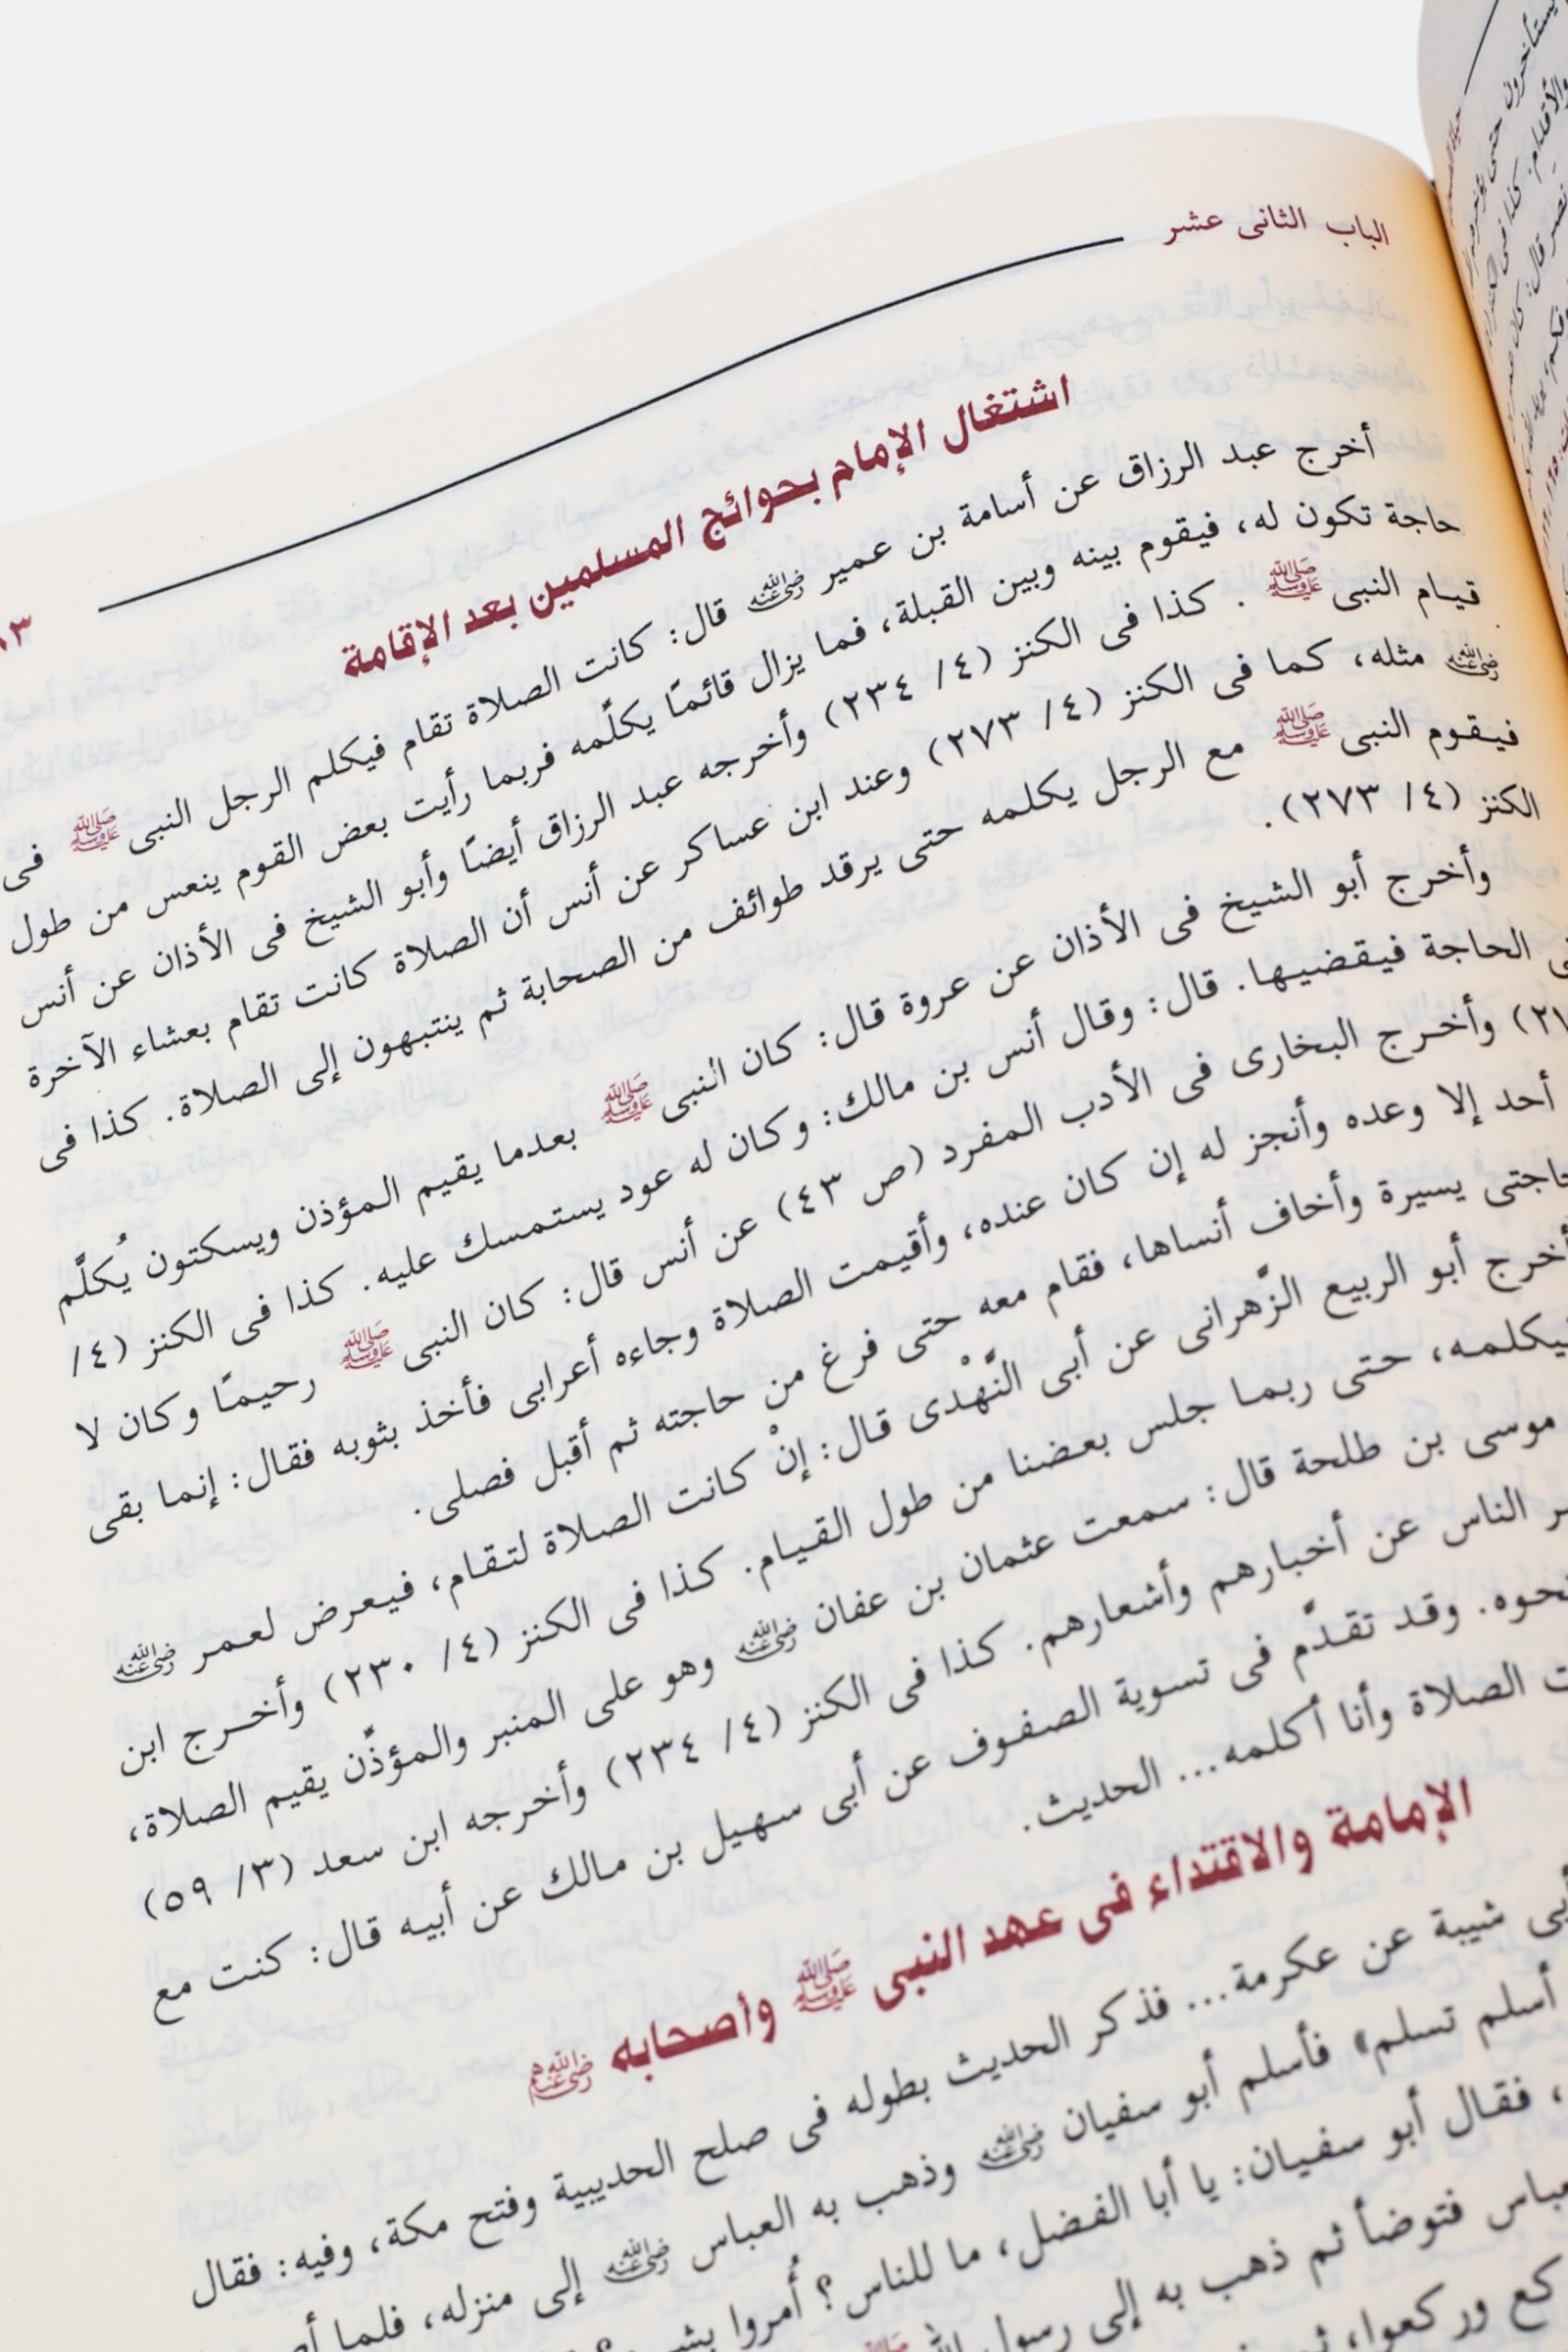 الباب الثانى عشر
اشتغال الإمام بحوائج المسلمين بعد الإقامة
أخرج عبد الرزاق عن أسامة بن عمير رضي الله عنه قال: كانت الصلاة تقام فيكلم الرجل النبى ﷺ فى
حاجة تكون له، فيقوم بينه وبين القبلة، فما يزال قائمًا يكلّمه فربما رأيت بعض القوم ينعس من طول
قيام النبى ﷺ . كذا فى الكنز (٤/ ٢٣٤) وأخرجه عبد الرزاق أيضًا وأبو الشيخ فى الأذان عن أنس
رضي الله عنه مثله، كما فى الكنز (٤/ ٢٧٣) وعند ابن عساكر عن أنس أن الصلاة كانت تقام بعشاء الآخرة
فيقوم النبى ﷺ مع الرجل يكلمه حتى يرقد طوائف من الصحابة ثم ينتبهون إلى الصلاة. كذا فى
الكنز (٤/ ٢٧٣).
وأخرج أبو الشيخ فى الأذان عن عروة قال: كان النبى ﷺ بعدما يقيم المؤذن ويسكتون يُكلّم
الحاجة فيقضيها. قال: وقال أنس بن مالك: وكان له عود يستمسك عليه. كذا فى الكنز (٤/
وأخرج البخارى فى الأدب المفرد (ص ٤٣) عن أنس قال: كان النبى ﷺ رحيمًا وكان لا
أحد إلا وعده وأنجز له إن كان عنده، وأقيمت الصلاة وجاءه أعرابى فأخذ بثوبه فقال: إنما بقى
يسيرة وأخاف أنساها، فقام معه حتى فرغ من حاجته ثم أقبل فصلى.
أبو الربيع الزّهرانى عن أبى النَّهْدى قال: إنْ كانت الصلاة لتقام، فيعرض لعمر رضي الله عنه
حتى ربما جلس بعضنا من طول القيام. كذا فى الكنز (٤/ ٢٣٠) وأخرج ابن
موسى بن طلحة قال: سمعت عثمان بن عفان رضي الله عنه وهو على المنبر والمؤذّن يقيم الصلاة،
الناس عن أخبارهم وأشعارهم. كذا فى الكنز (٤/ ٢٣٤) وأخرجه ابن سعد (٣/ ٥٩)
وقد تقدّم فى تسوية الصفوف عن أبى سهيل بن مالك عن أبيه قال: كنت مع
الصلاة وأنا أكلمه... الحديث.
الإمامة والاقتداء فى عهد النبى ﷺ وأصحابه رضي الله عنهم
شيبة عن عكرمة... فذكر الحديث بطوله فى صلح الحديبية وفتح مكة، وفيه: فقال
أسلم تسلم» فأسلم أبو سفيان رضي الله عنه وذهب به العباس رضي الله عنه إلى منزله، فلما
، فقال أبو سفيان: يا أبا الفضل، ما للناس؟ أُمروا
فتوضأ ثم ذهب به إلى رسول الله
وركعوا،